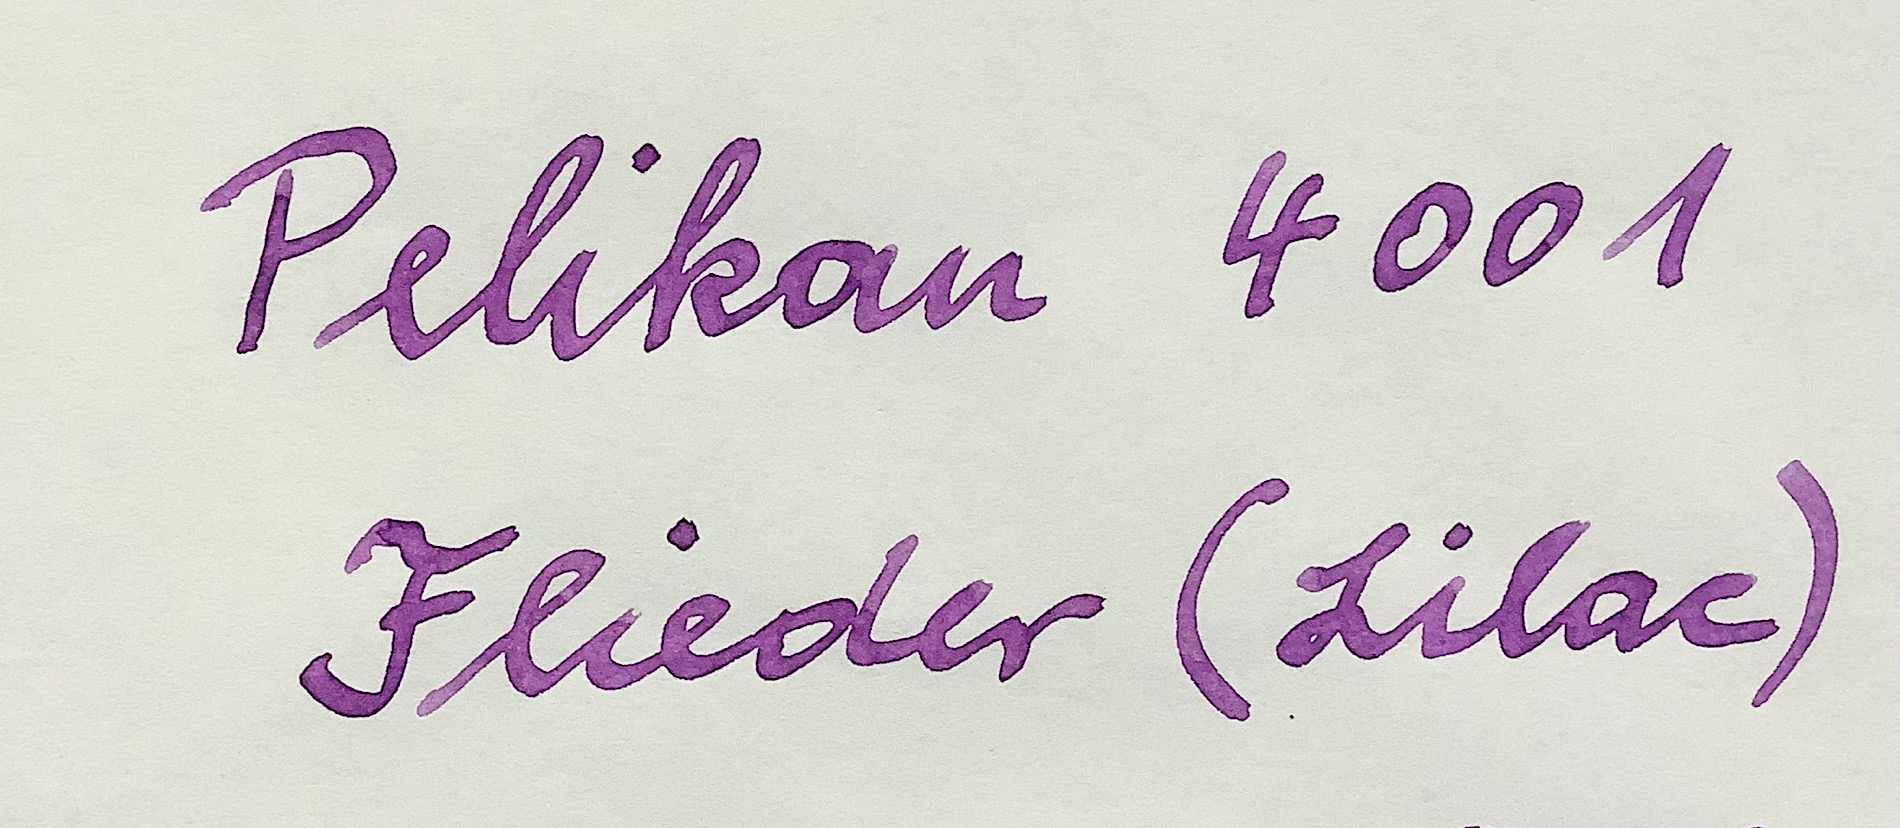 Pelikan 4001
Flieder (Lilac)